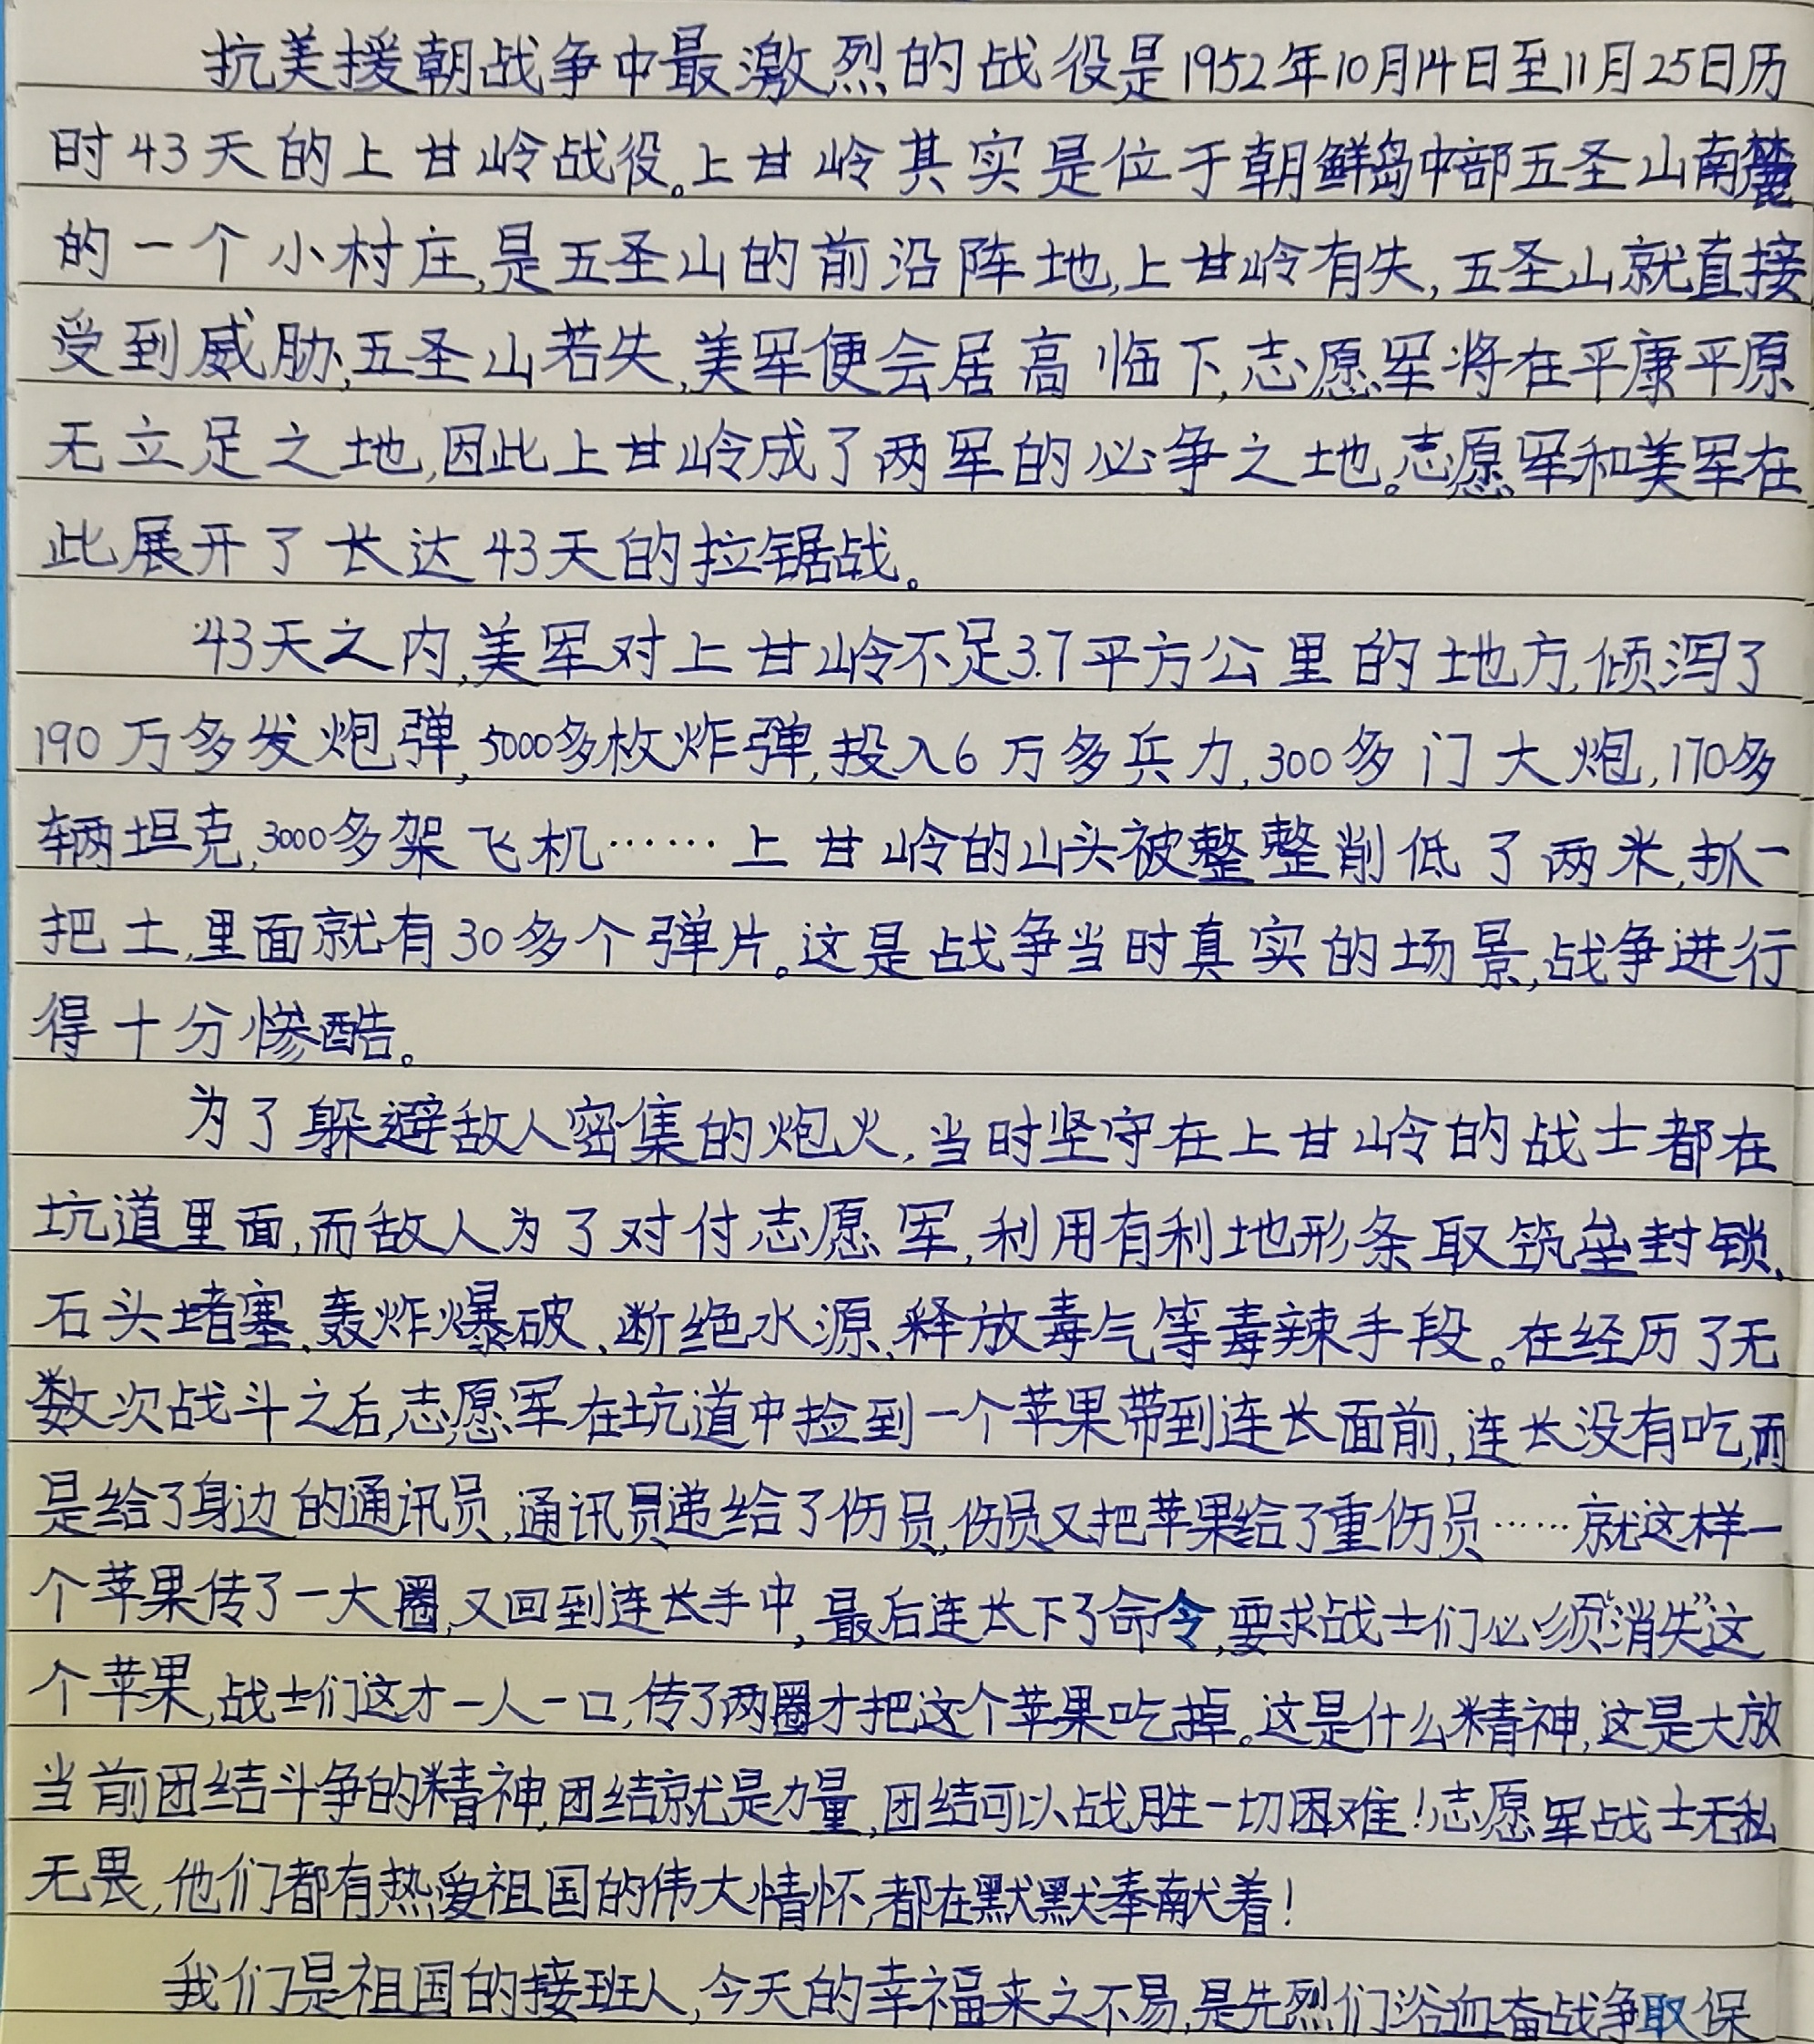 抗美援朝战争中最激烈的战役是1952年10月14日至11月25日历
时43天的上甘岭战役。上甘岭其实是位于朝鲜岛中部五圣山南麓
的一个小村庄,是五圣山的前沿阵地,上甘岭有失,五圣山就直接
受到威胁,五圣山若失,美军便会居高临下,志愿军将在平康平原
无立足之地,因此上甘岭成了两军的必争之地。志愿军和美军在
此展开了长达43天的拉锯战。
43天之内,美军对上甘岭不足3.7平方公里的地方,倾泻了
190万多发炮弹,5000多枚炸弹,投入6万多兵力,300多门大炮,170多
辆坦克,3000多架飞机……上甘岭的山头被整整削低了两米,抓一
把土,里面就有30多个弹片。这是战争当时真实的场景,战争进行
得十分惨酷。
为了躲避敌人密集的炮火,当时坚守在上甘岭的战士都在
坑道里面,而敌人为了对付志愿军,利用有利地形条取筑垒封锁、
石头堵塞、轰炸爆破、断绝水源、释放毒气等毒辣手段。在经历了无
数次战斗之后,志愿军在坑道中捡到一个苹果带到连长面前,连长没有吃,而
是给了身边的通讯员,通讯员递给了伤员,伤员又把苹果给了重伤员……就这样一
个苹果传了一大圈,又回到连长手中,最后连长下了命令,要求战士们必须“消失”这
个苹果,战士们这才一人一口,传了两圈才把这个苹果吃掉。这是什么精神,这是大放
当前团结斗争的精神,团结就是力量,团结可以战胜一切困难!志愿军战士无私
无畏,他们都有热爱祖国的伟大情怀,都在默默奉献着!
我们是祖国的接班人,今天的幸福来之不易,是先烈们浴血奋战争取保